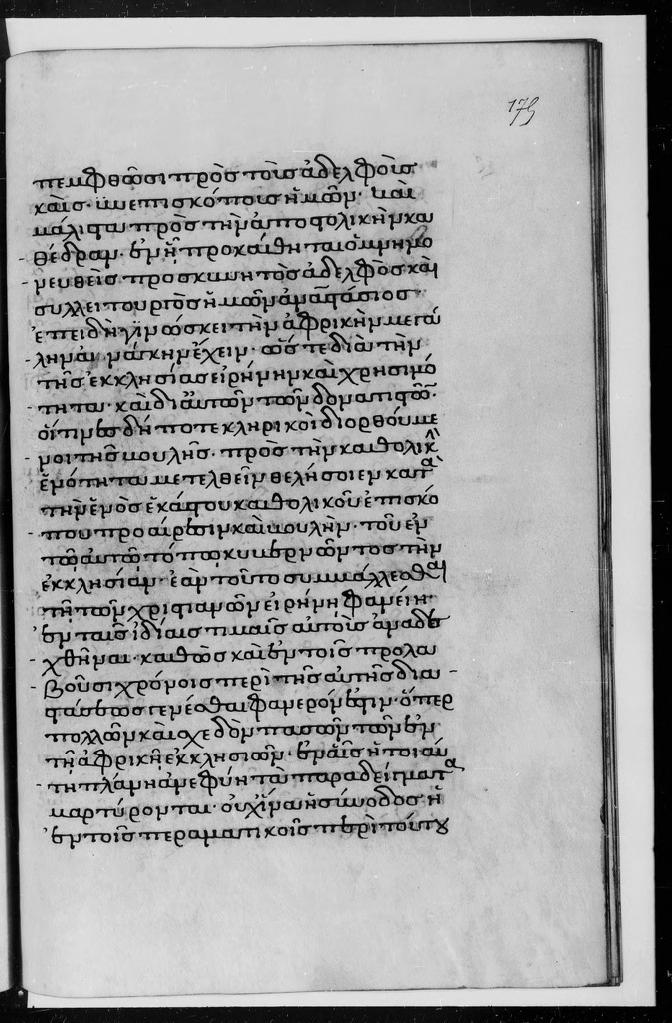 175
πεμφθῶσι πρὸς τοὺς ἀδελφοὺς
καὶ συνεπισκόπους ἡμῶν· καὶ
μάλιστα πρὸς τὴν ἀποστολικὴν κα
θέδραν· ἐν ᾗ προκάθηται ὁ μνημο
νευθεὶς προσκυνητὸς ἀδελφὸς καὶ
συλλειτουργὸς ἡμῶν ἀναστάσιος
ἐπειδὴ γινώσκει τὴν ἀφρικὴν μεγά
λην ἀνάγκην ἔχειν· ὥστε διὰ τὴν
τῆς ἐκκλησίας εἰρήνην καὶ χρησιμό
τητα· καὶ δι αὐτῶν τῶν δονατιστῶν·
οἵτινες δήποτε κληρικοὶ διορθούμε
νοι τῆς βουλῆς· πρὸς τὴν καθολικὴν
ἑνότητα μετελθεῖν θελήσοιεν κατὰ
τὴν ἑνὸς ἑκάστου καθολικοῦ ἐπισκό
που προαίρεσιν καὶ βουλὴν· τοῦ ἐν
τῷ αὐτῷ τόπῳ κυβερνῶντος τὴν
ἐκκλησίαν· ἐὰν τοῦτο συμβάλλεσθαι
τῇ τῶν χριστιανῶν εἰρήνῃ φανείη·
ἐν ταῖς ἰδίαις τιμαῖς αὐτοὺς ἀναδε
χθῆναι· καθὼς καὶ ἐν τοῖς προλα
βοῦσι χρόνοις περὶ τῆς αὐτῆς δια
στάσεως γενέσθαι φανερόν ἐστιν· ὅπερ
πολλῶν καὶ σχεδὸν πασῶν τῶν ἐν
τῇ ἀφρικῇ ἐκκλησιῶν· ἐν αἷς ἡ τοιαύ
τη πλάνη ἀνεφύη τὰ παραδείγματα
μαρτύρονται· οὐχ ἵνα ἡ σύνοδος ἡ
ἐν τοῖς περαματικοῖς περὶ τούτου